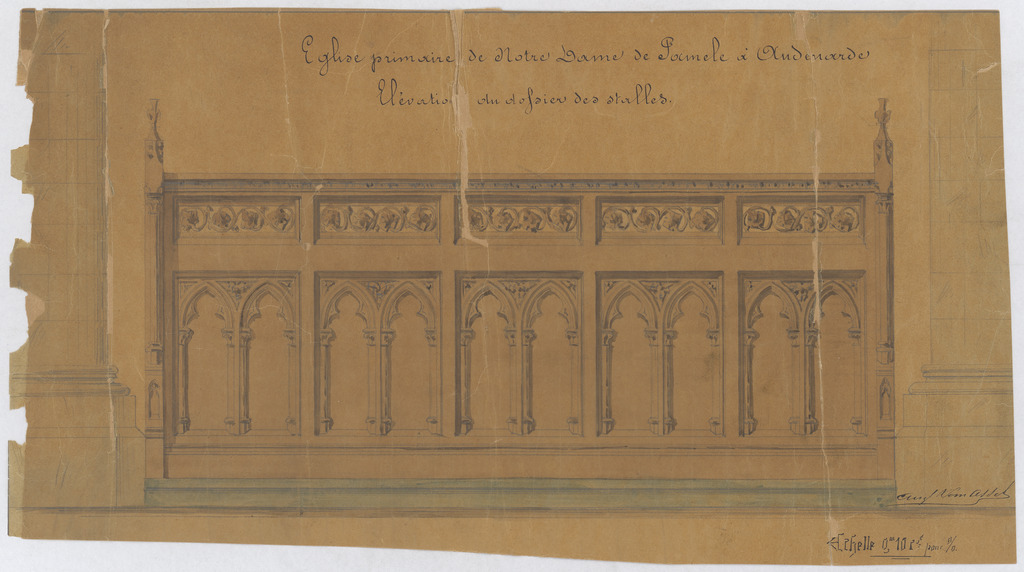 Eglise primaire de Notre Dame de Pamele à Audenarde
Elévation du dossier des stalles.
Aug Van Assche
Echelle 0,m 10 c.s pour %